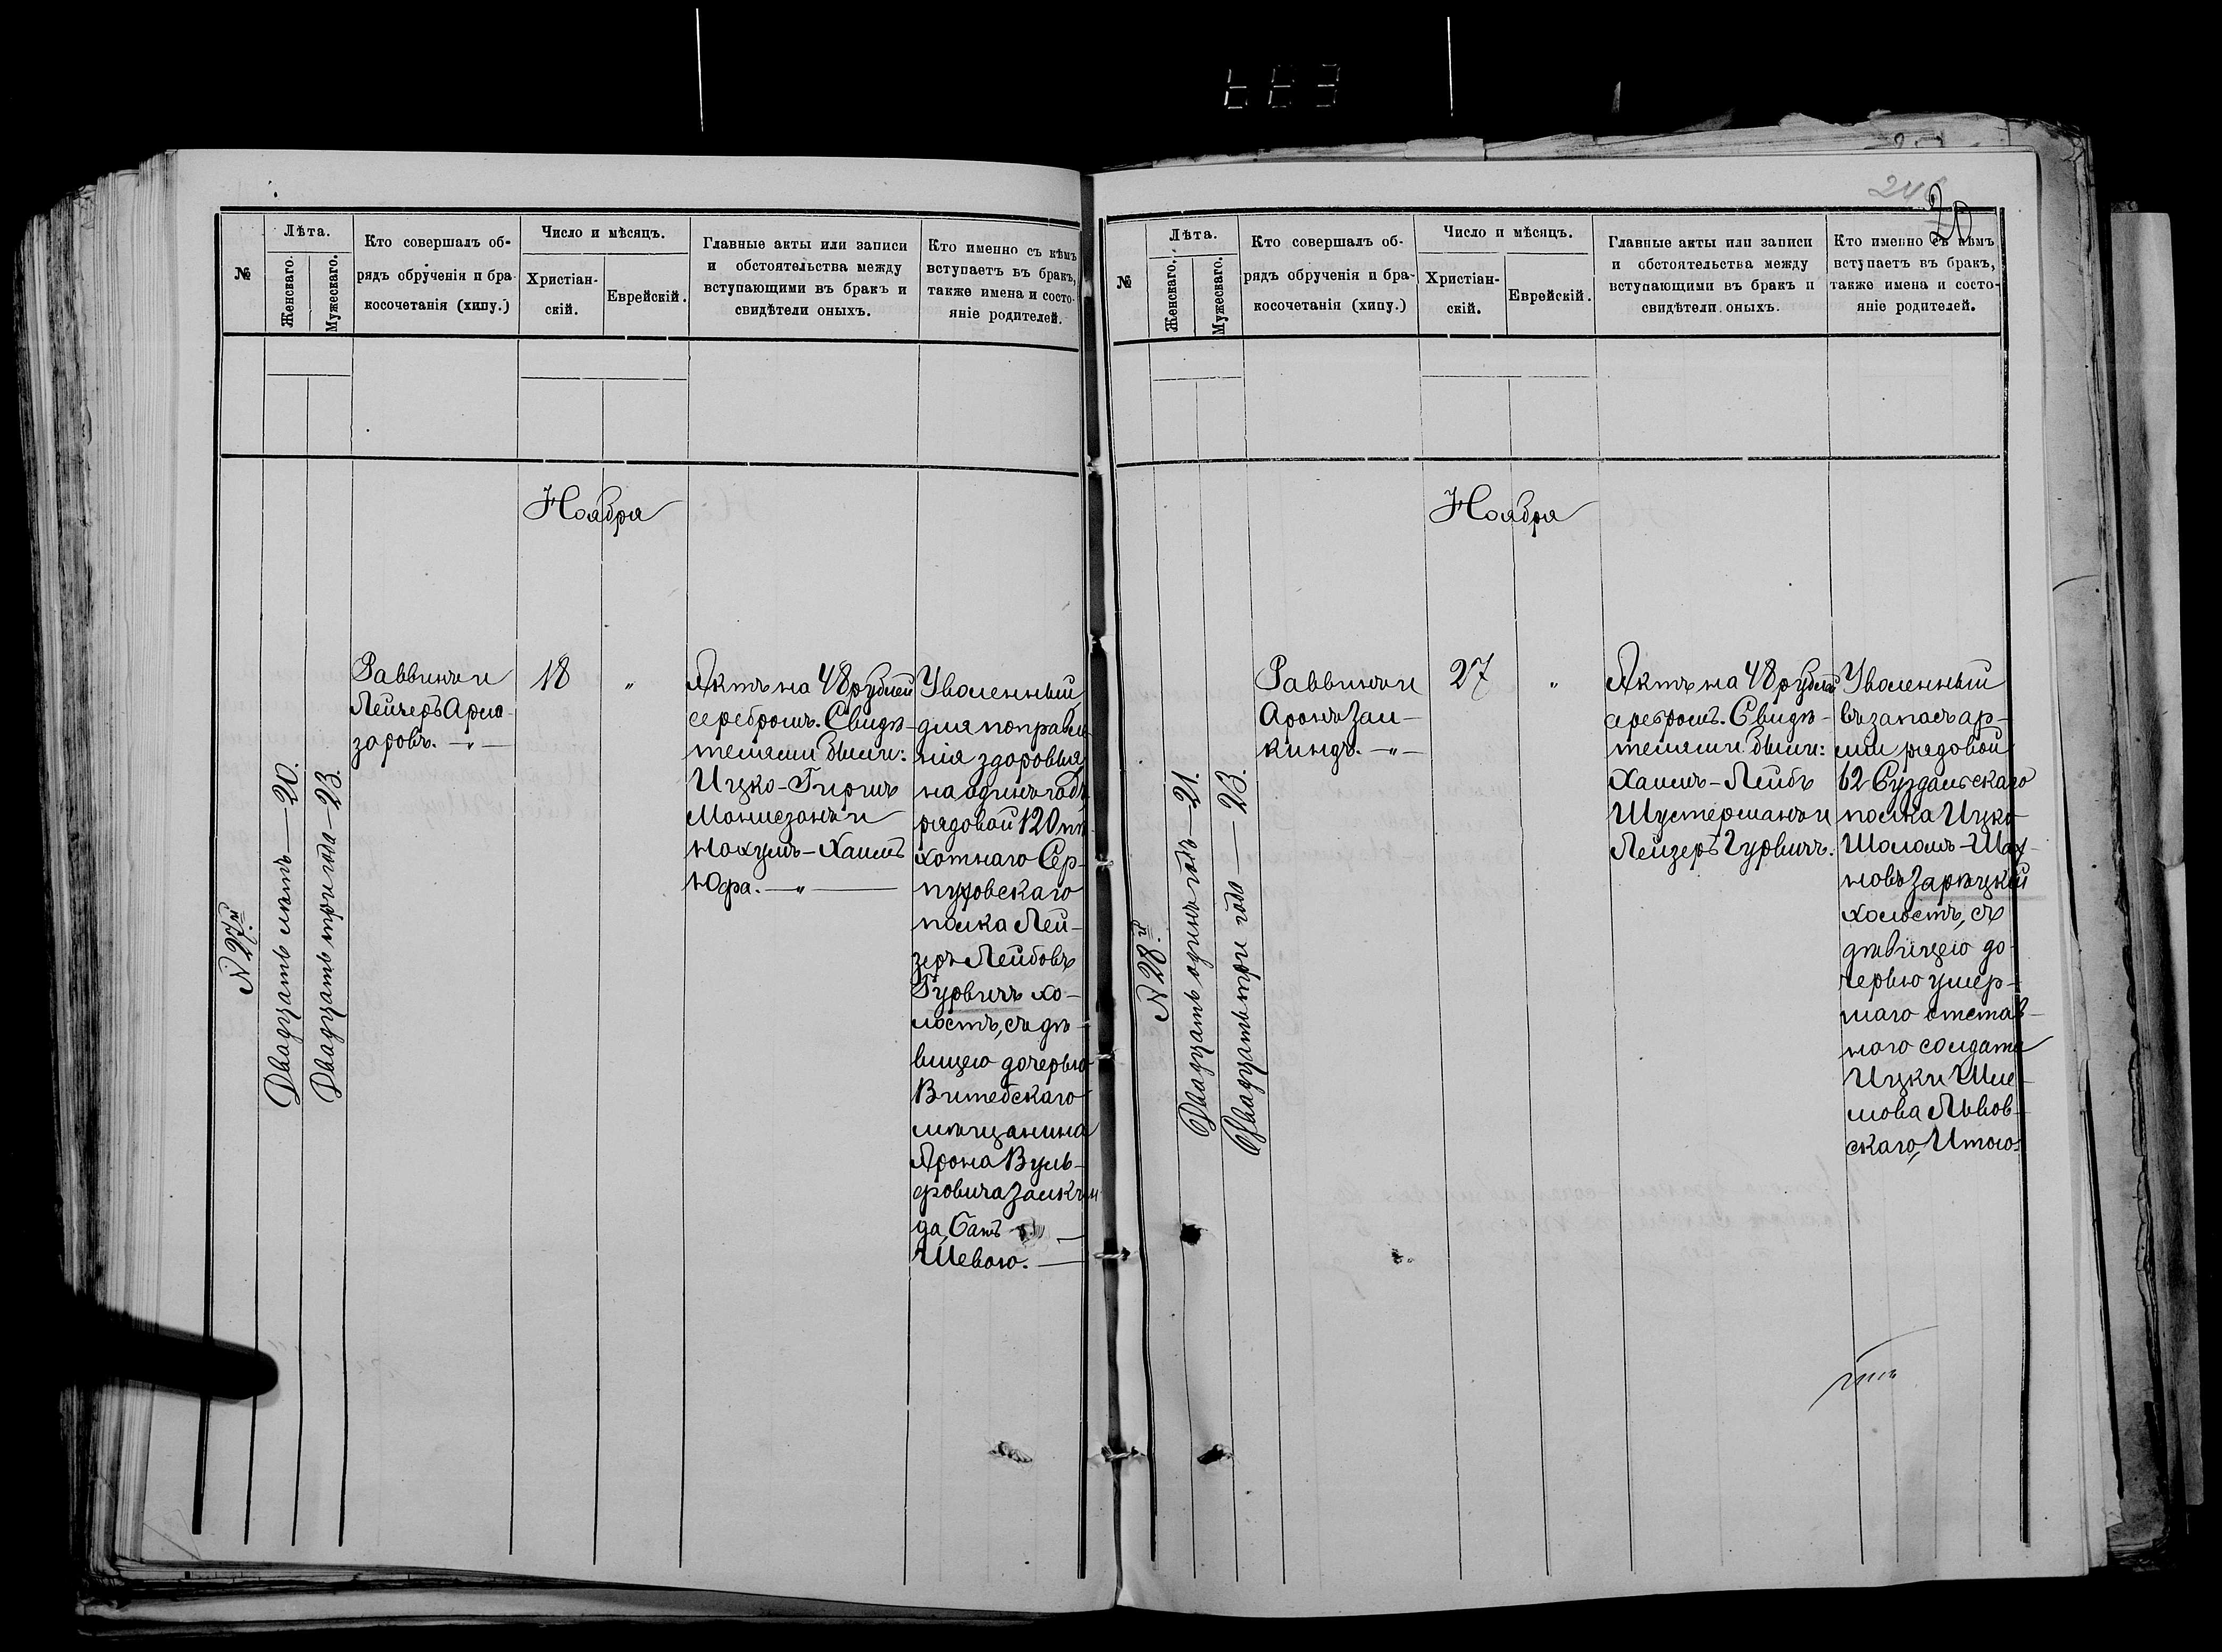 246
20
№
Лѣта.
Женскаго.
Мужескаго.
Кто совершалъ об-
рядъ обрученія и бра-
косочетанія (хипу.)
Число и мѣсяцъ.
Христіан-
скій.
Еврейскій.
Главные акты или записи
и обстоятельства между
вступающими въ бракъ и
свидѣтели оныхъ.
Кто именно съ кѣмъ
вступаетъ въ бракъ,
также имена и состо-
яніе родителей.
Ноября
N 27й.
Двадцать лѣтъ — 20.
Двадцать три года — 23.
Раввинъ и
Лейзеръ Арла-
заровъ. —„—
18
„
Актъ на 48 рублей
серебромъ. Свидѣ-
телями были:
Ицко-Гиршъ
Монисзонъ и
Нохумъ-Хаимъ
Юфа. —„—
Уволенный
для поправле-
нія здоровья
на одинъ годъ
рядовой 120 пѣ-
хотнаго Сер-
пуховскаго
полка Лей-
зеръ Лейбовъ
Гурвичъ хо-
лостъ, съ дѣ-
вицею дочерью
Витебскаго
мѣщанина
Арона Вуль-
фовича Заикин-
да, Батъ
Шевою. —
№
Лѣта.
Женскаго.
Мужескаго.
Кто совершалъ об-
рядъ обрученія и бра-
косочетанія (хипу.)
Число и мѣсяцъ.
Христіан-
скій.
Еврейскій.
Главные акты или записи
и обстоятельства между
вступающими въ бракъ и
свидѣтели оныхъ.
Кто именно съ кѣмъ
вступаетъ въ бракъ,
также имена и состо-
яніе родителей.
Ноября
N 28й.
Двадцать одинъ годъ — 21.
Двадцать три года — 23.
Раввинъ и
Аронъ Заи-
киндъ. —„—
27
„
Актъ на 48 рублей
серебромъ. Свидѣ-
телями были:
Хаимъ-Лейбъ
Шустерманъ и
Лейзеръ Гурвичъ.
Уволенный
въ запасъ ар-
міи рядовой
62 Суздальскаго
полка Ицко-
Шоломъ-Шах-
новъ Зарѣцкій
холостъ, съ
дѣвицею до-
черью умер-
шаго отстав-
ного солдата
Ицки Шле-
мова Львов-
скаго, Итою.